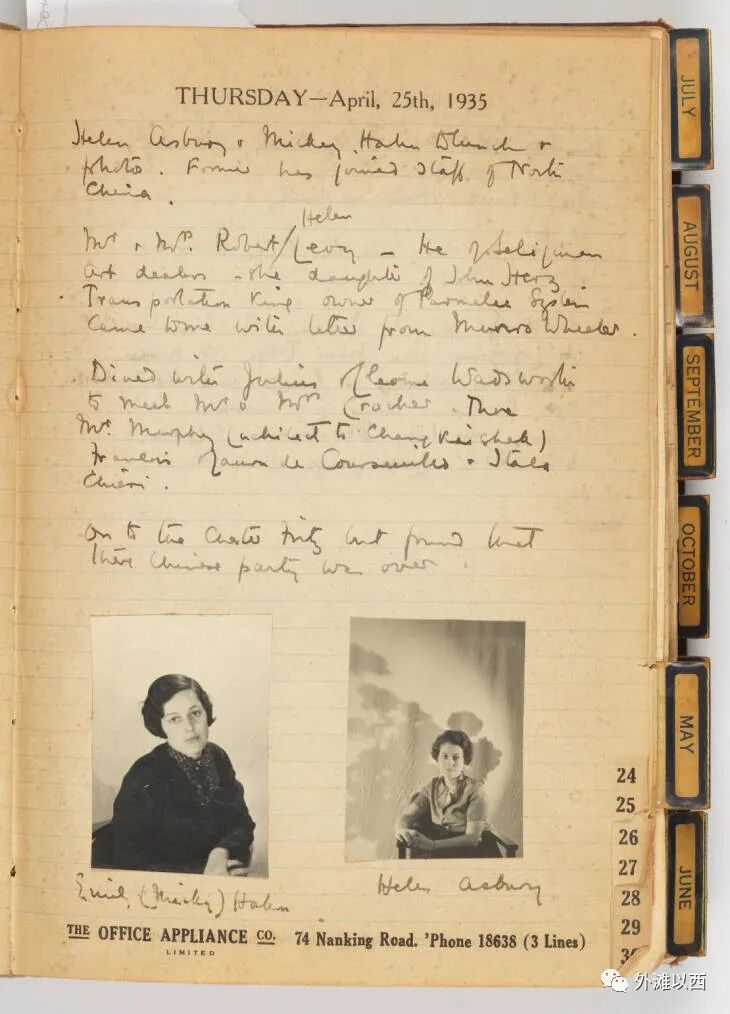 THURSDAY—April, 25th, 1935
Helen Asbury & Mickey Hahn to lunch &
photos. Former has joined staff of North
China.
Helen
Mr & Mrs. Robert / Levy – He of Seligman
art dealers – she daughter of John Herz
Transportation King owner of Parmelee System
Came to me with letter from Monroe Wheeler.
Dined with Julius & Cleome Wadsworth
to meet Mr & Mrs Crocker. There
Mr. Murphy (architect to Chang Kai Shek)
Francis & Laura de Courseulles & Italo
Chieri.
On to the Chester Fritz but found that
there Chinese party was over.
Emily (Micky) Hahn
Helen Asbury
THE OFFICE APPLIANCE CO. 74 Nanking Road. 'Phone 18638 (3 Lines)
LIMITED
JULY
AUGUST
SEPTEMBER
OCTOBER
MAY
JUNE
24
25
26
27
28
29
外滩以西